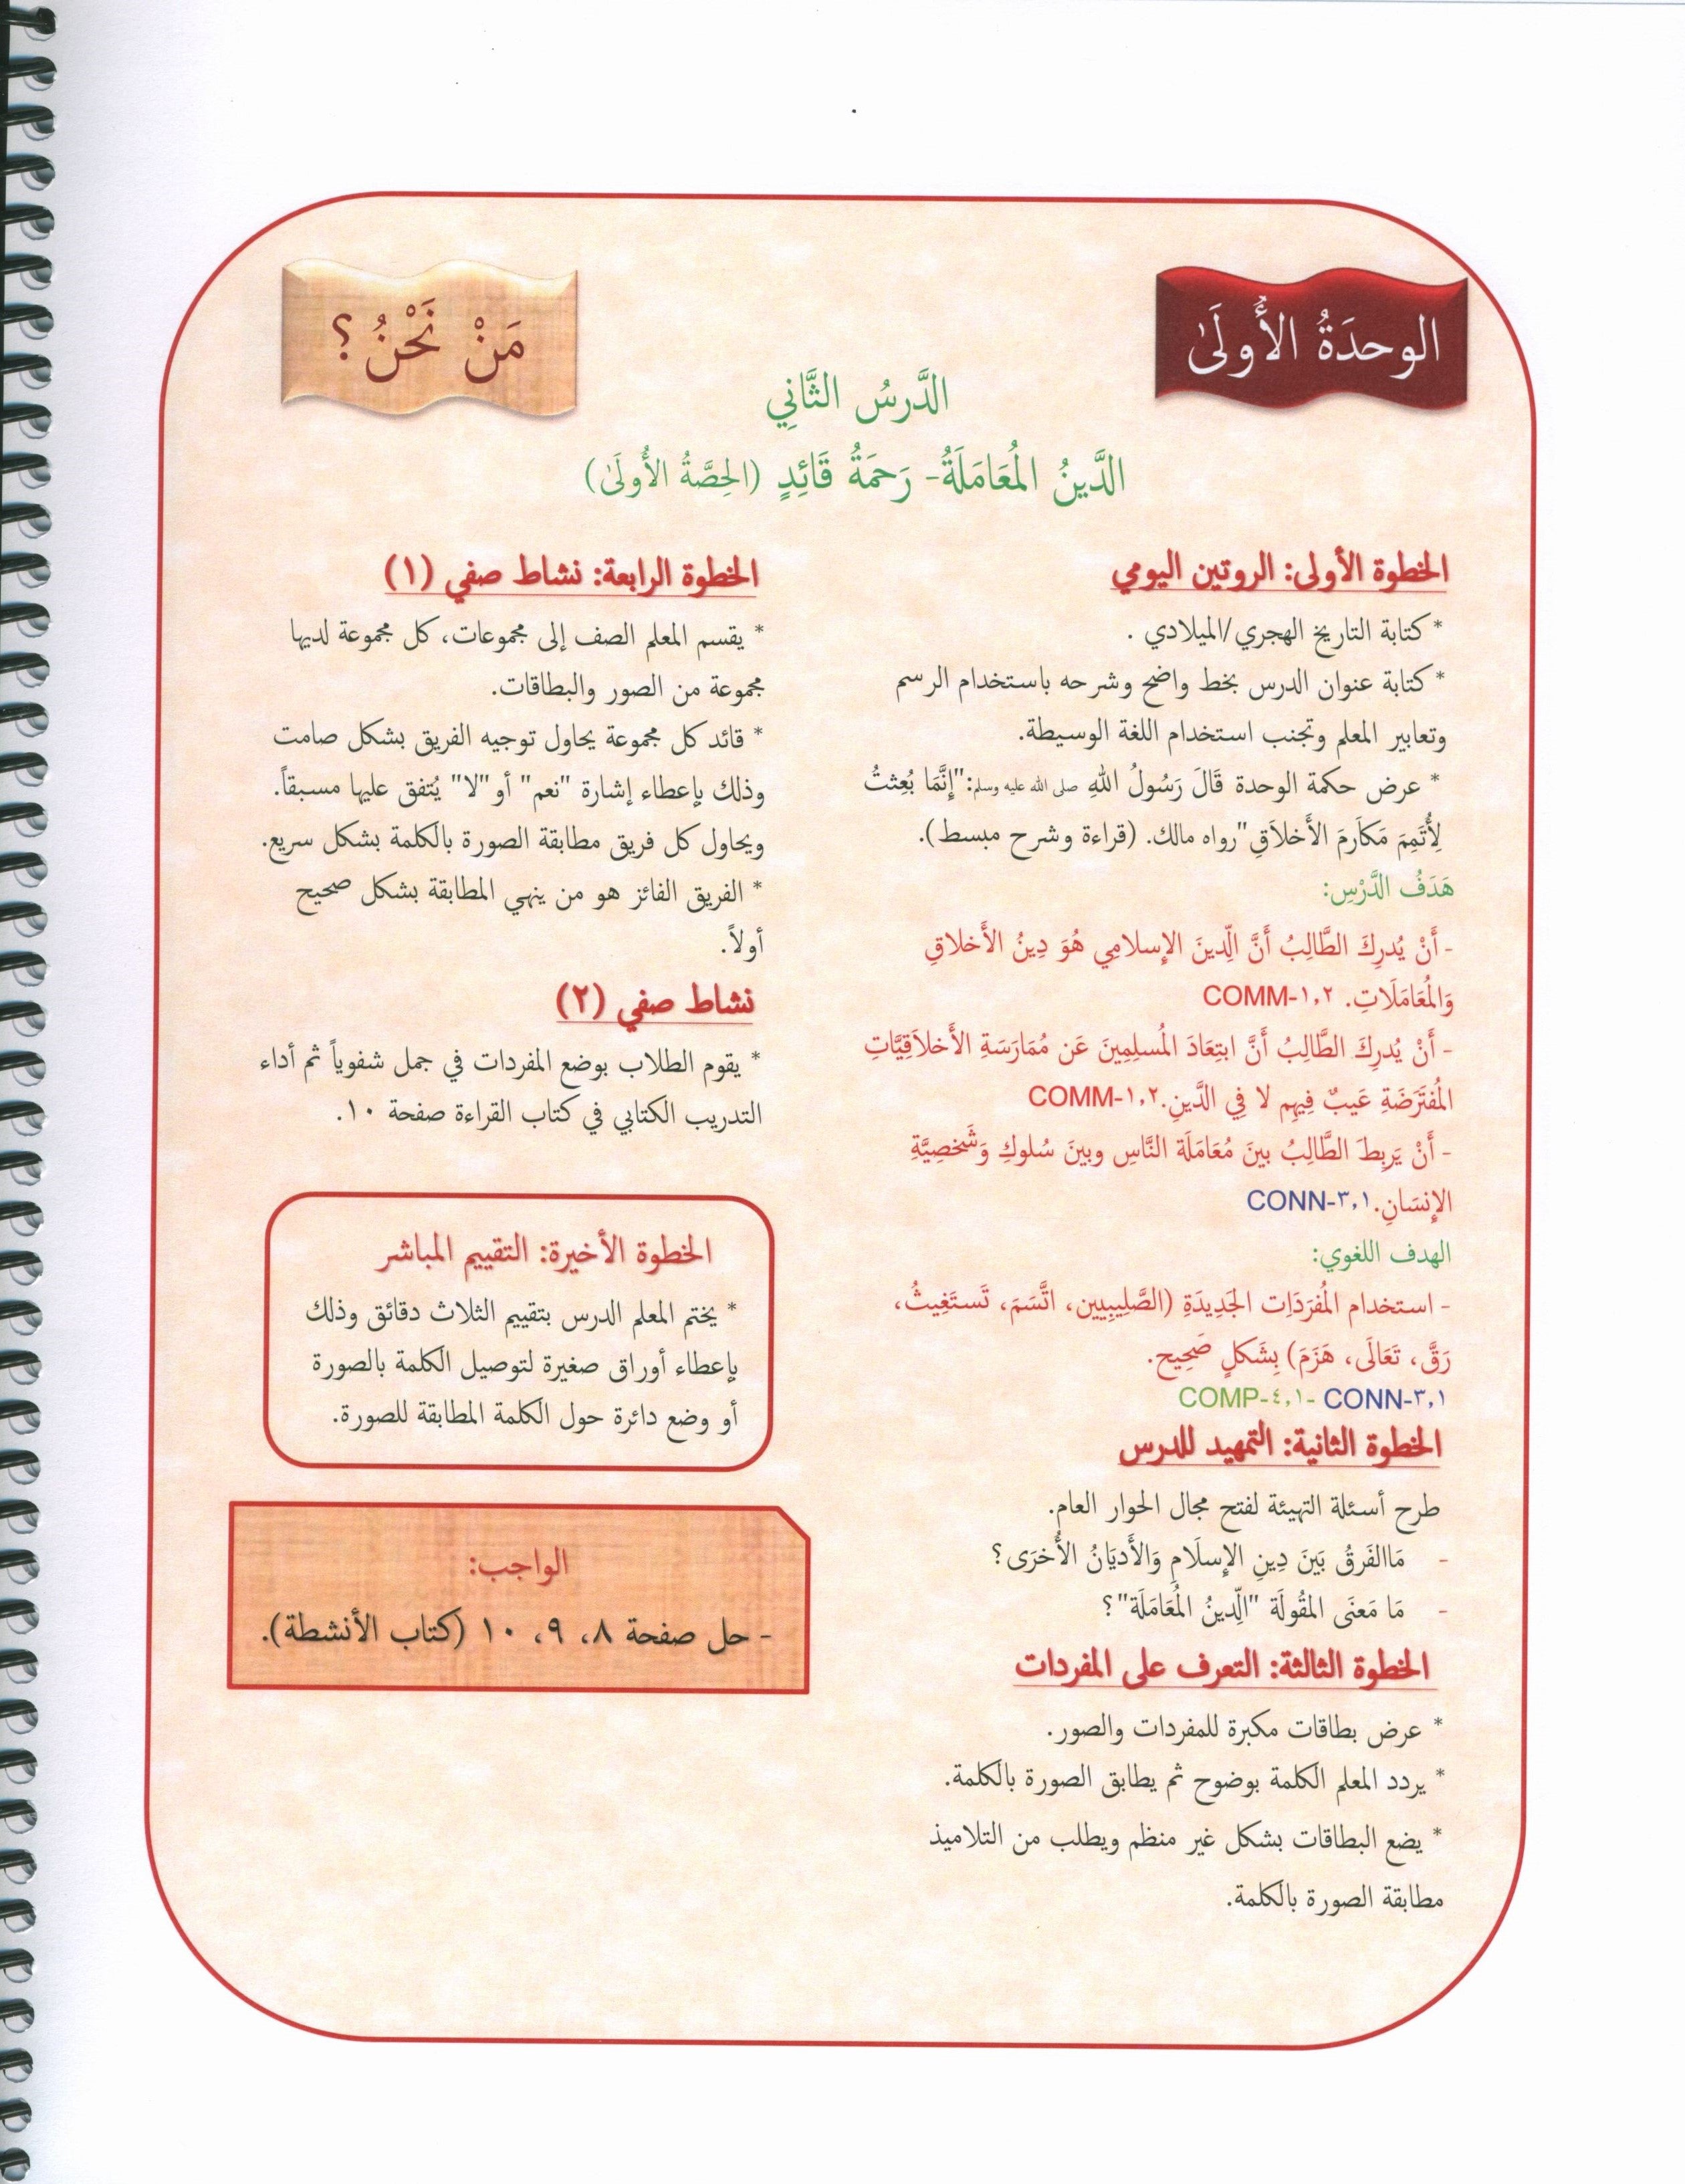 الوحدَةُ الأُولَىٰ
مَنْ نَحْنُ؟
الدَّرسُ الثَّانِي
الدَّينُ المُعَامَلَةُ- رَحمَةُ قَائِدٍ (الحِصَّةُ الأُولَىٰ)
الخطوة الأولى: الروتين اليومي
* كتابة التاريخ الهجري/الميلادي .
* كتابة عنوان الدرس بخط واضح وشرحه باستخدام الرسم
وتعابير المعلم وتجنب استخدام اللغة الوسيطة.
* عرض حكمة الوحدة قَالَ رَسُولُ اللهِ صلى الله عليه وسلم:"إِنَّمَا بُعِثتُ
لِأُتَمِمَ مَكَارِمَ الأَخلاَقِ"رواه مالك. (قراءة وشرح مبسط).
هَدَفُ الدَّرْسِ:
- أَنْ يُدرِكَ الطَّالِبُ أَنَّ الِّدينَ الإِسلامِي هُوَ دِينُ الأَخلاقِ
وَالمُعَامَلَاتِ. COMM-١,٢
- أَنْ يُدرِكَ الطَّالِبُ أَنَّ ابتِعَادَ المُسلِمِينَ عَن مُمَارَسَةِ الأَخلاَقِيَّاتِ
المُفتَرَضَةِ عَيبٌ فِيهِم لا فِي الدَّينِ.COMM-١,٢
- أَنْ يَربِطَ الطَّالِبُ بينَ مُعَامَلَة النَّاسِ وبينَ سُلوكِ وَشَخصِيَّةِ
الإِنسَانِ.CONN-٣,١
الهدف اللغوي:
- استخدام المُفرَدَاِت الجَدِيدَةِ (الصَّلِيبِيين، اتَّسَمَ، تَستَغِيثُ،
رَقَّ، تَعَالَى، هَزَمَ) بِشَكلٍ صَحِيح.
COMP-٤,١- CONN-٣,١
الخطوة الثانية: التمهيد للدرس
طرح أسئلة التهيئة لفتح مجال الحوار العام.
- مَاالفَرقُ بَينَ دِينِ الإِسلَامِ وَالأَديَانُ الأُخرَى؟
- مَا مَعنَى المَقُولَة "الِّدينُ المُعَامَلَة"؟
الخطوة الثالثة: التعرف على المفردات
* عرض بطاقات مكبرة للمفردات والصور.
* يردد المعلم الكلمة بوضوح ثم يطابق الصورة بالكلمة.
* يضع البطاقات بشكل غير منظم ويطلب من التلاميذ
مطابقة الصورة بالكلمة.
الخطوة الرابعة: نشاط صفي (١)
* يقسم المعلم الصف إلى مجموعات، كل مجموعة لديها
مجموعة من الصور والبطاقات.
* قائد كل مجموعة يحاول توجيه الفريق بشكل صامت
وذلك بإعطاء إشارة "نعم" أو "لا" يُتفق عليها مسبقاً.
ويحاول كل فريق مطابقة الصورة بالكلمة بشكل سريع.
* الفريق الفائز هو من ينهي المطابقة بشكل صحيح
أولاً.
نشاط صفي (٢)
* يقوم الطلاب بوضع المفردات في جمل شفوياً ثم أداء
التدريب الكتابي في كتاب القراءة صفحة ١٠.
الخطوة الأخيرة: التقييم المباشر
* يختم المعلم الدرس بتقييم الثلاث دقائق وذلك
بإعطاء أوراق صغيرة لتوصيل الكلمة بالصورة
أو وضع دائرة حول الكلمة المطابقة للصورة.
الواجب:
- حل صفحة ٨، ٩، ١٠ (كتاب الأنشطة).